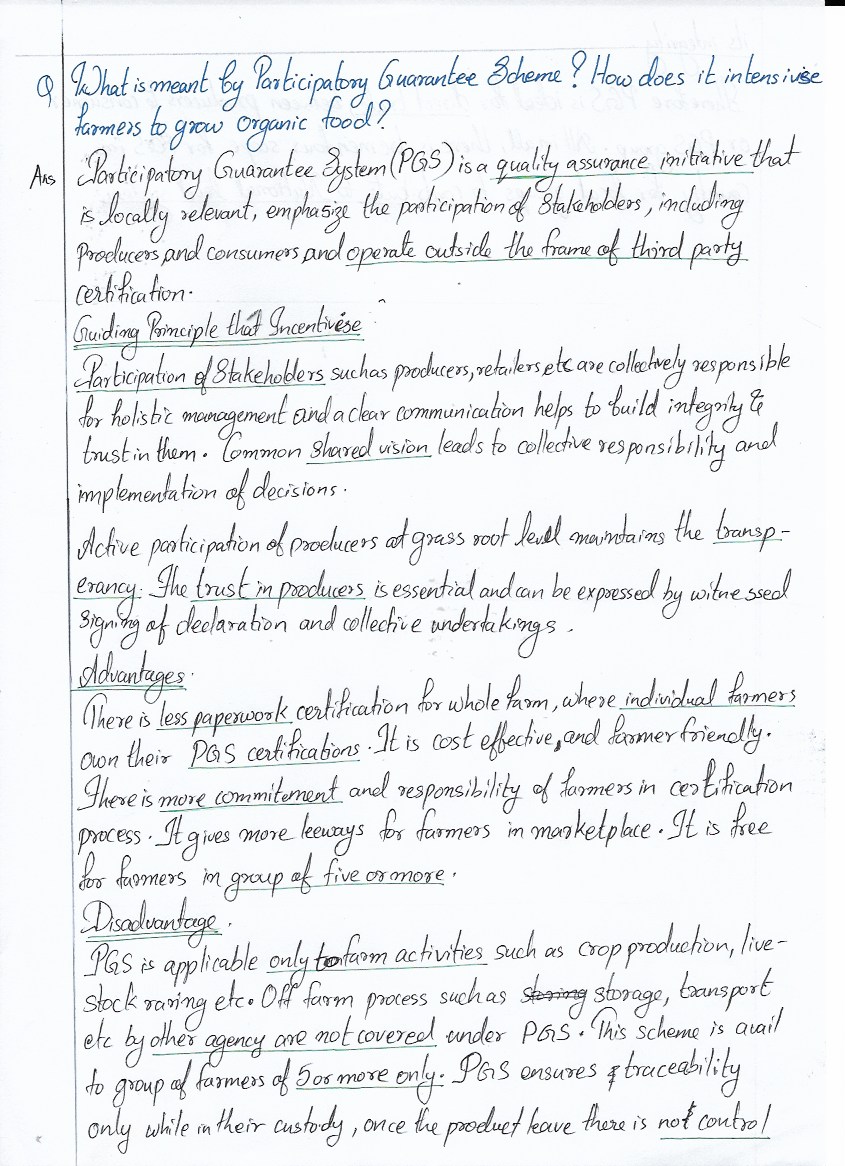 Q What is meant by Participatory Guarantee Scheme? How does it intensivise
farmers to grow organic food?
Ans Participatory Guarantee System (PGS) is a quality assurance initiative that
is locally relevant, emphasize the participation of Stakeholders, including
Producers and consumers and operate outside the frame of third party
certification.
Guiding Principle that Incentivise
Participation of Stakeholders such as producers, retailers etc are collectively responsible
for holistic management and a clear communication helps to build integrity &
trust in them. Common shared vision leads to collective responsibility and
implementation of decisions.
Active participation of producers at grass root level maintains the transp-
erancy. The trust in producers is essential and can be expressed by witnessed
signing of declaration and collective undertakings.
Advantages.
There is less paperwork certification for whole farm, where individual farmers
own their PGS certifications. It is cost effective, and farmer friendly.
There is more commitement and responsibility of farmers in certification
process. It gives more leeways for farmers in marketplace. It is free
for farmers in group of five or more.
Disadvantage.
PGS is applicable only to farm activities such as crop production, live-
stock raring etc. Off farm process such as storing storage, transport
etc by other agency are not covered under PGS. This scheme is avail
to group of farmers of 5 or more only. PGS ensures traceability
only while in their custody, once the product leave there is not control